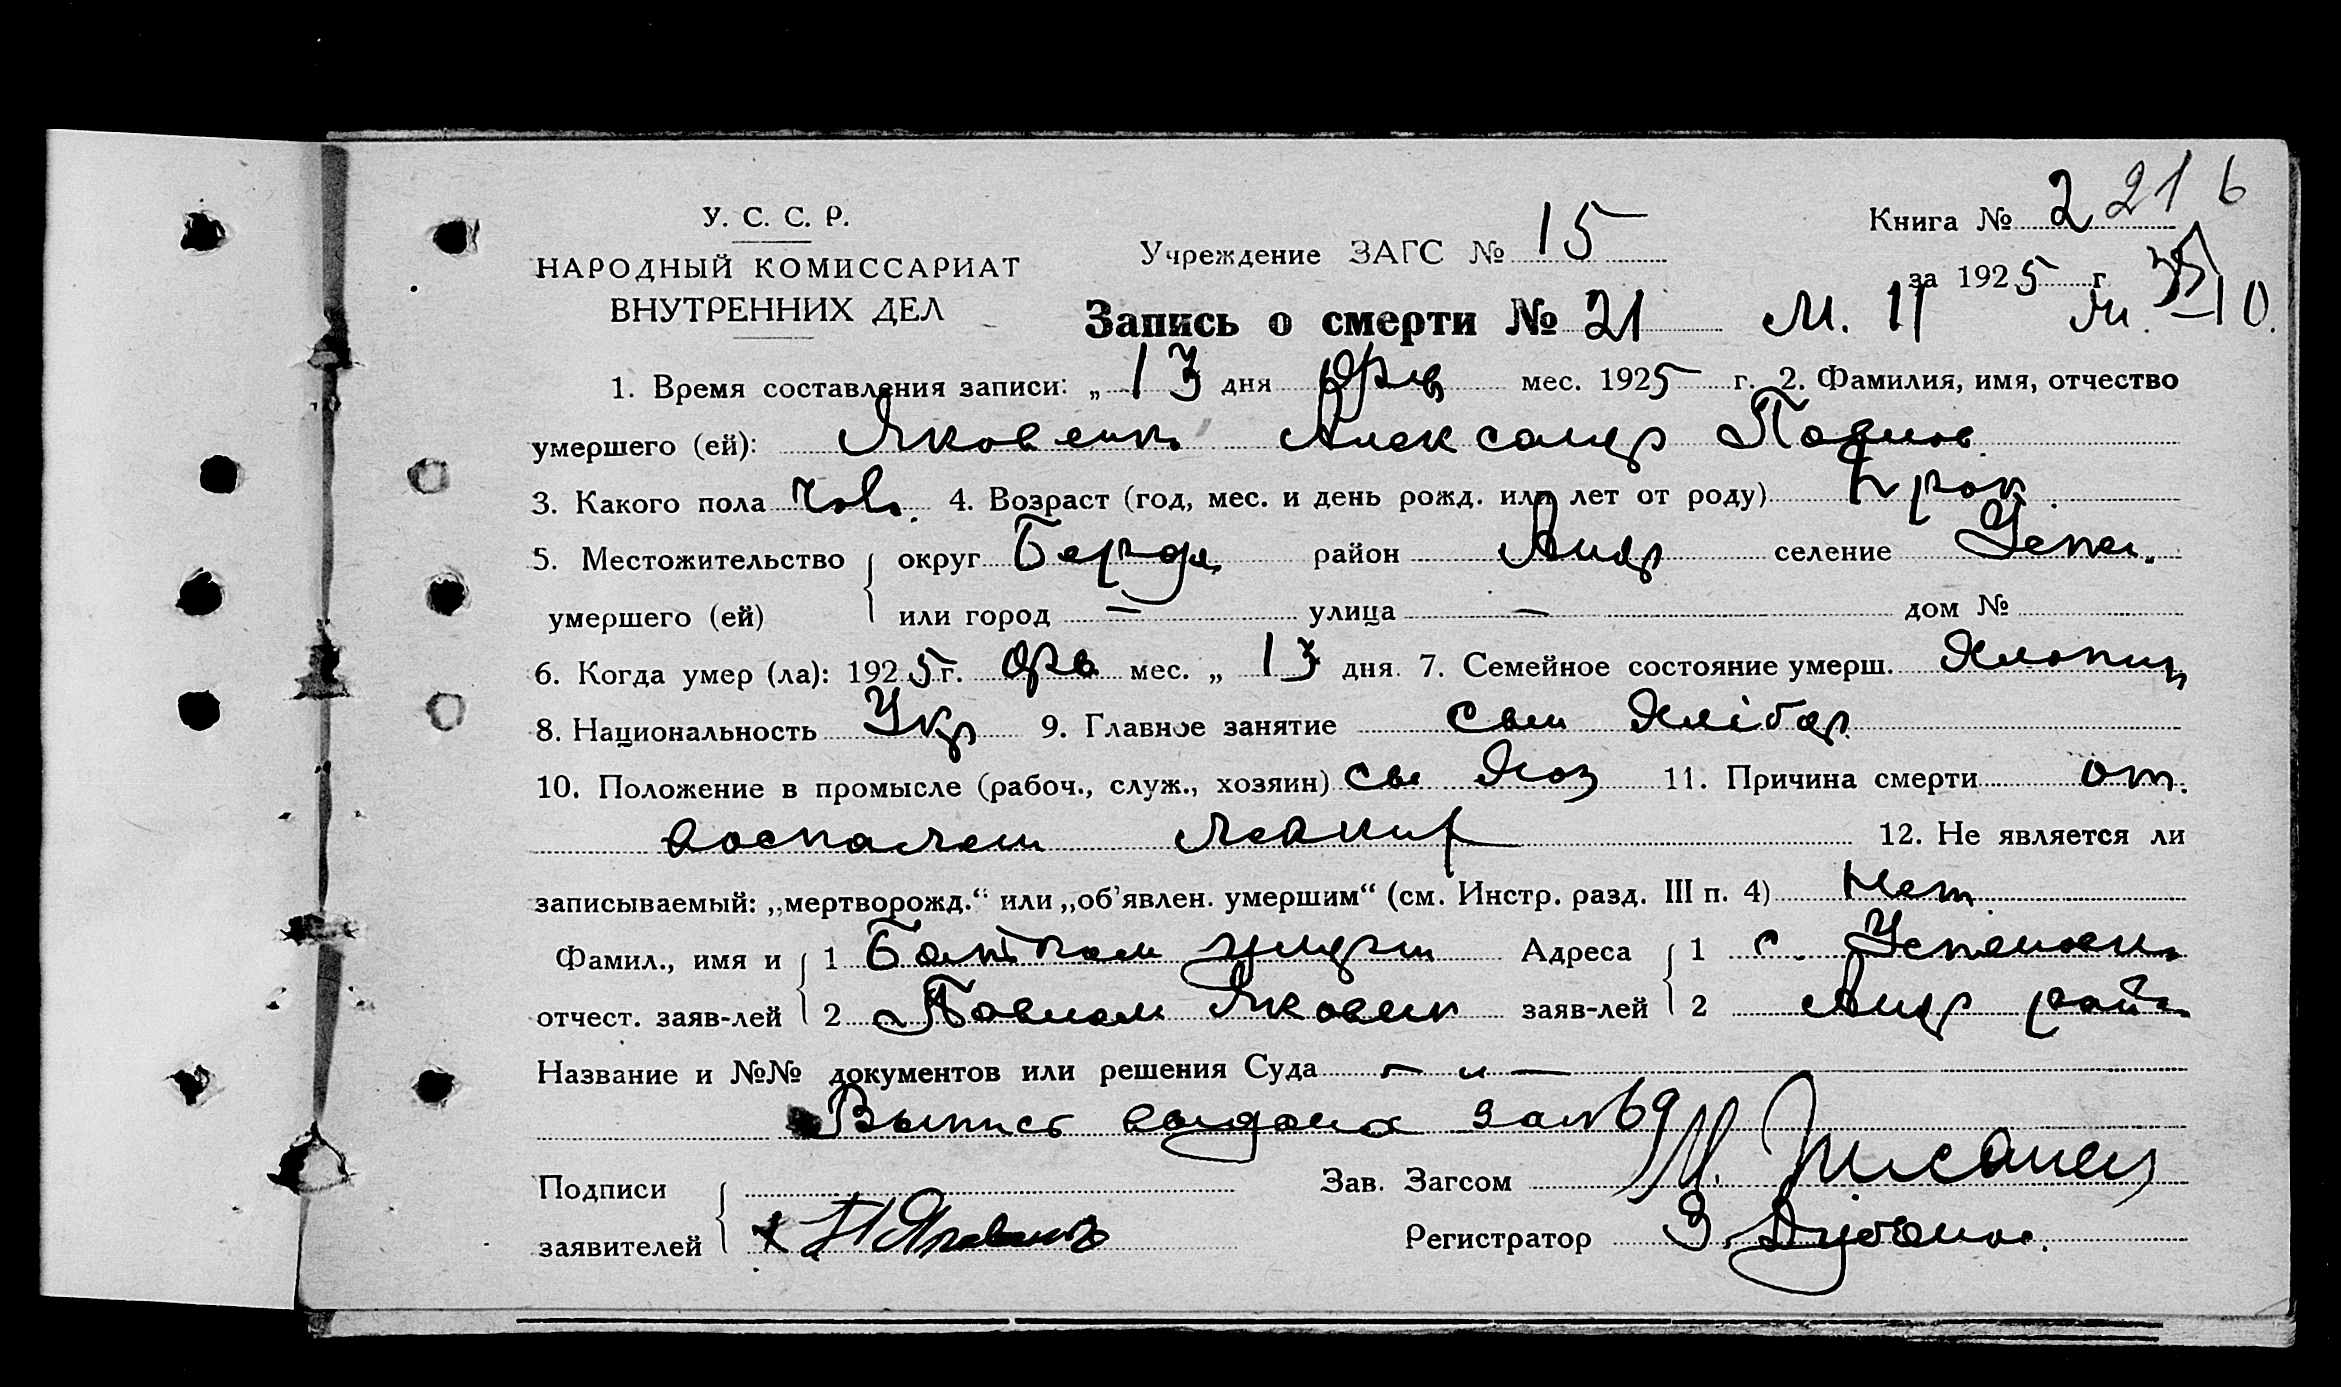 Книга № 2 21 6
У. С. С. Р.
Учреждение ЗАГС № 15
НАРОДНЫЙ КОМИССАРИАТ
за 1925 г.
ВНУТРЕННИХ ДЕЛ
Запись о смерти № 21 М. 11 М. 10.
1. Время составления записи: „ 13 дня мес. 1925 г. 2. Фамилия, имя, отчество
умершего (ей): Яковенко Александр Павлов.
3. Какого пола чол. 4. Возраст (год, мес. и день рожд. или лет от роду)
5. Местожительство округ Бердя район Андр селение Успен.
умершего (ей) или город — улица — дом №
6. Когда умер (ла): 1925 г. фев мес. „ 13 дня. 7. Семейное состояние умерш. Хлопец
8. Национальность Укр 9. Главное занятие Хлібор
10. Положение в промысле (рабоч., служ., хозяин) Хоз 11. Причина смерти от
воспален легких 12. Не является ли
записываемый: „мертворожд.“ или „об'явлен. умершим“ (см. Инстр. разд. III п. 4) Нет
Фамил., имя и 1 Батьком Адреса 1 с.
отчест. заяв-лей 2 Павлом Яковенк заяв-лей 2 Андр райо
Название и №№ документов или решения Суда — " —
Выпись выдана за № 69
Подписи Зав. Загсом
заявителей Регистратор